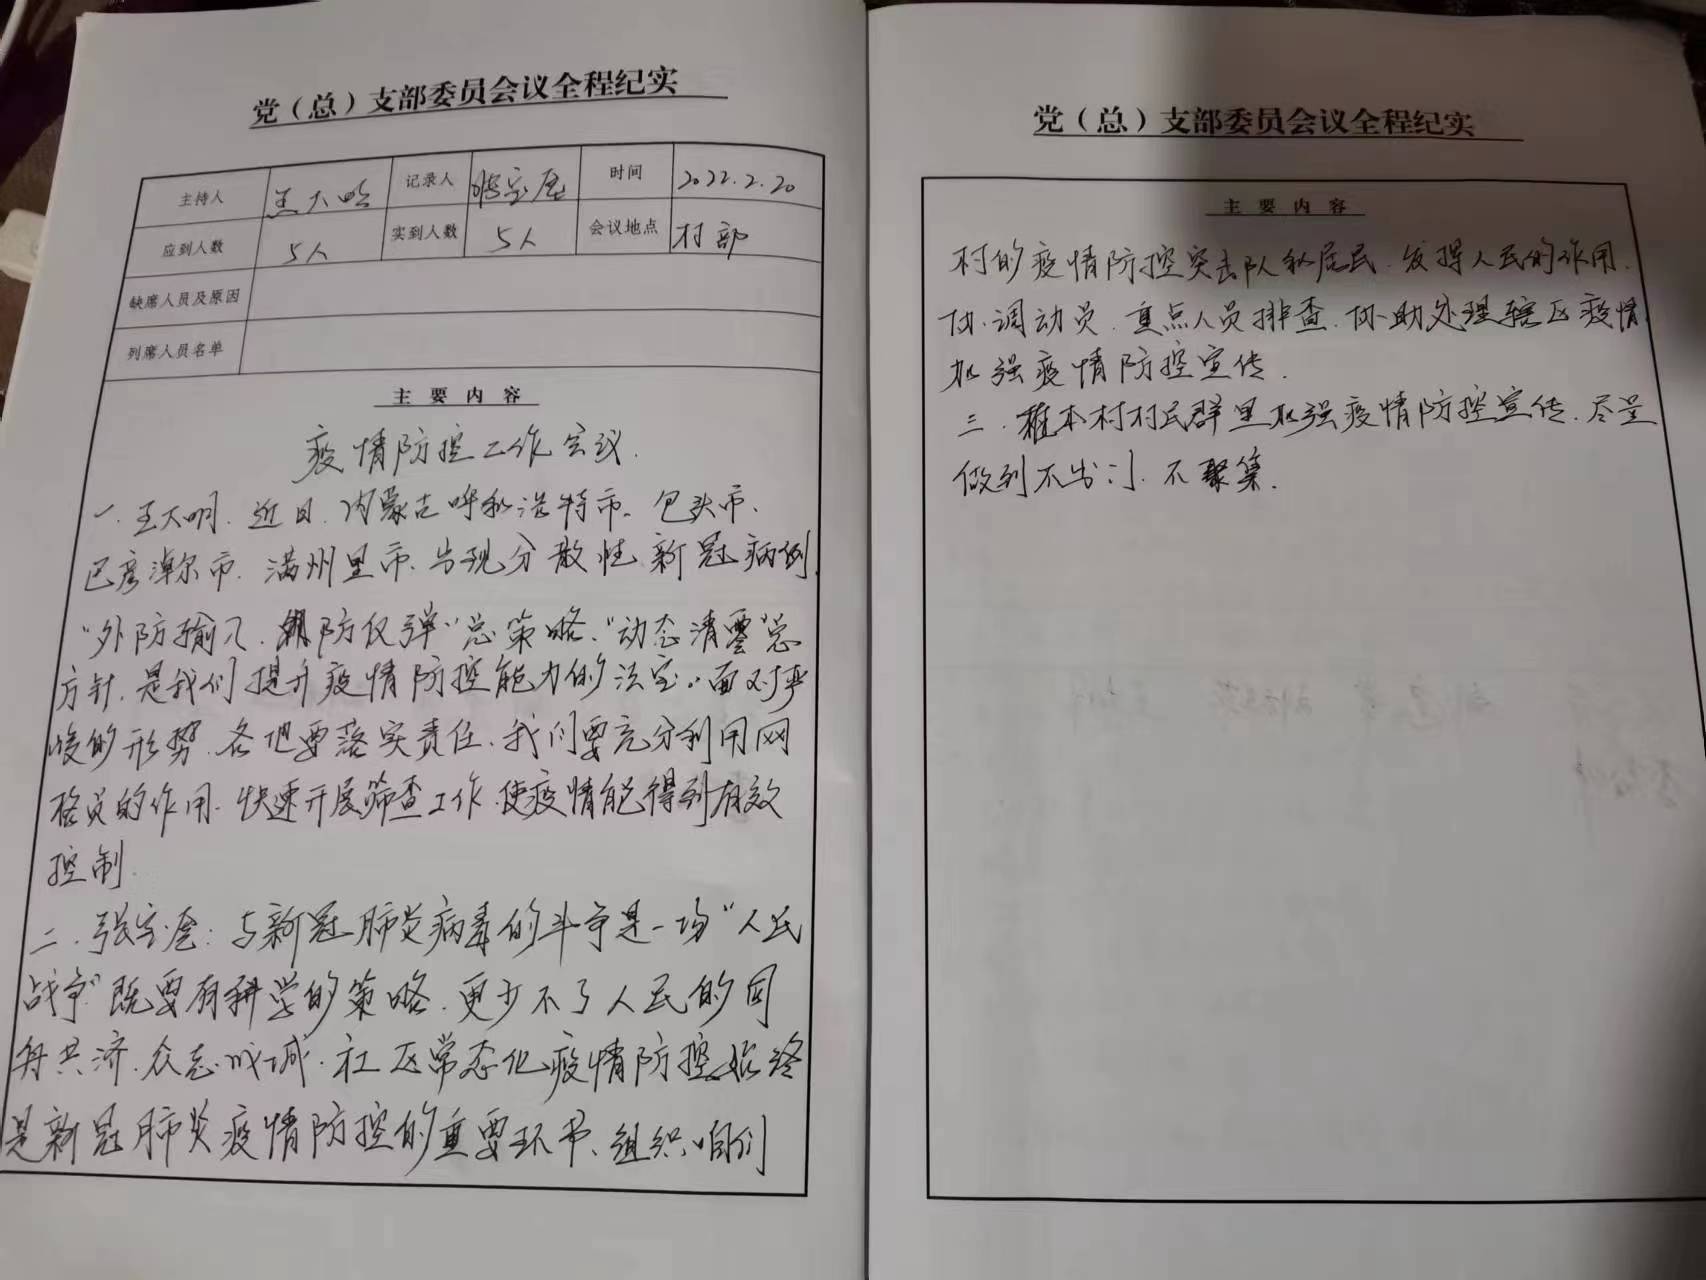 党（总）支部委员会议全程纪实
主持人 王大明 记录人 张宝奎 时间 2022.2.20
应到人数 5人 实到人数 5人 会议地点 村部
缺席人员及原因
列席人员名单
主要内容
疫情防控工作会议.
一.王大明.近日.内蒙古呼和浩特市、包头市、
巴彦淖尔市.满州里市.出现分散性新冠病例.
“外防输入、内防反弹”总策略、“动态清零”总
方针.是我们提升疫情防控能力的法宝。面对严
峻的形势.各地要落实责任.我们要充分利用网
格员的作用.快速开展筛查工作.使疫情能得到有效
控制.
二.张宝奎：与新冠肺炎病毒的斗争是一场“人民
战争”既要有科学的策略.更少不了人民的同
舟共济.众志成城.社区常态化疫情防控始终
是新冠肺炎疫情防控的重要环节、组织咱们
党（总）支部委员会议全程纪实
主要内容
村的疫情防控突击队和居民.发挥人民的作用.
协调动员.重点人员排查.协助处理辖区疫情.
加强疫情防控宣传.
三.在本村村民群里加强疫情防控宣传.尽量
做到不出门.不聚集.